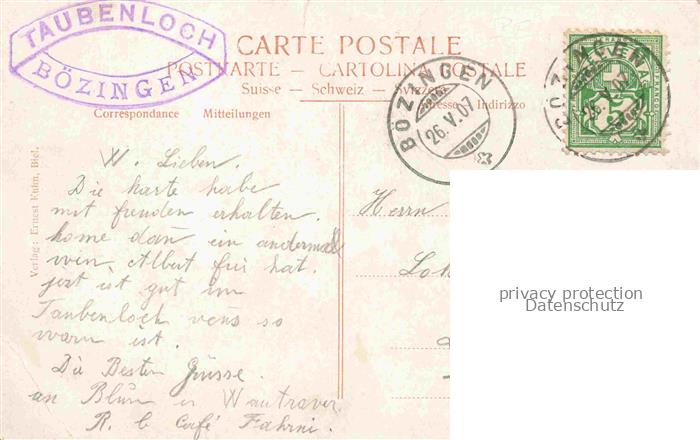 TAUBENLOCH
BÖZINGEN
CARTE POSTALE
POSTKARTE - CARTOLINA POSTALE
Suisse - Schweiz - Svizzera
Correspondance Mitteilungen
Adresse Indirizzo
BÖZINGEN
26.V.07
BÖZINGEN
26.V.07
Verlag: Ernest Kuhn, Biel.
W. Lieben.
Die karte habe
mit freuden erhalten.
kome dan ein andermall
wen Albert für hat.
jezt ist gut im
Taubenloch wens so
warm ist.
Die Besten Grüsse.
an Blum
R. b Café Fahrni.
Herrn
privacy protection
Datenschutz